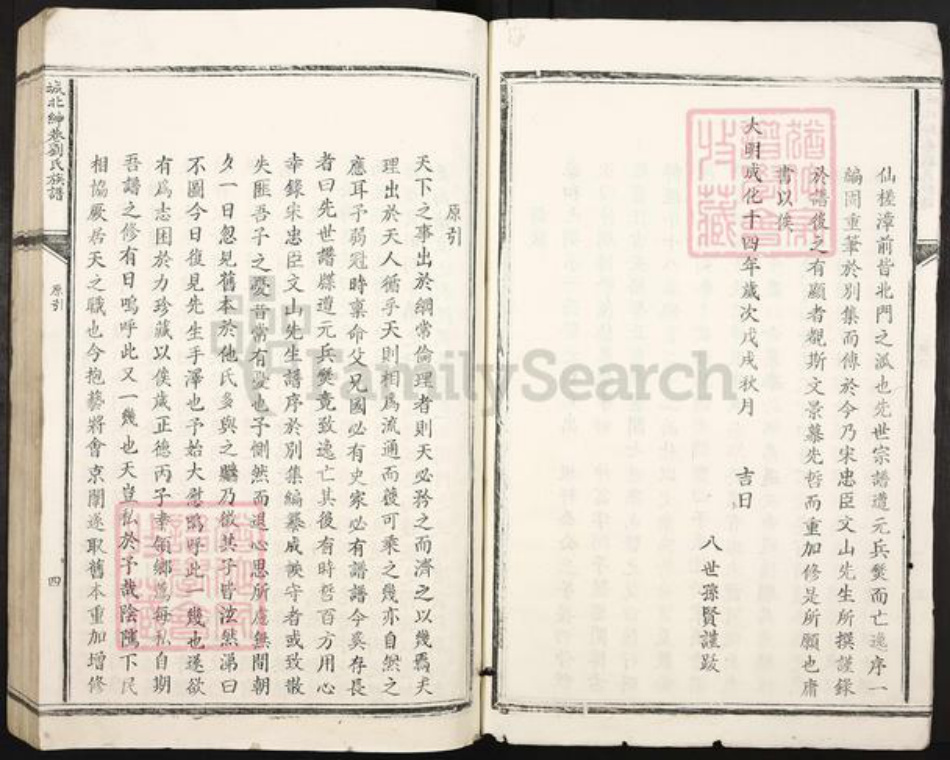 仙槎漳前皆北門之派也先世宗譜遭元兵燹而亡逸序一
編閣重筆於別集而傳於今乃宋忠臣文山先生所撰謹錄
於譜後之有顯者覩斯文景慕先哲而重加修是所願也庸
書以俟
大明成化十四年歲次戊戌秋月 吉日
八世孫賢謹跋
原引
天下之事出於綱常倫理者則天必矜之而濟之以幾焉夫
理出於天人循乎天則相為流通而彼可乘之幾亦自然之
應耳予弱冠時稟命父兄國必有史家必有譜譜今奚存長
者曰先世譜牒遭元兵燹竟致逸亡其後有時哲百方用心
幸錄宋忠臣文山先生譜序於別集編纂成帙守者或致散
失匪吾子之憂昔常有憂也予惻然而退心思所處無間朝
夕一日忽見舊本於他氏多與之贈乃徵其子皆泫然涕曰
不圖今日復見先生手澤也予始大慰嗚呼此一幾也遂欲
有為志困於力珍藏以俟歲正德丙子幸領鄉薦每私自期
吾譜之修有日嗚呼此又一幾也天豈私於予哉陰騭下民
相協厥居天之職也今抱藝將會京闈遂取舊本重加增修
城北紳巷劉氏族譜
原引
四
FamilySearch